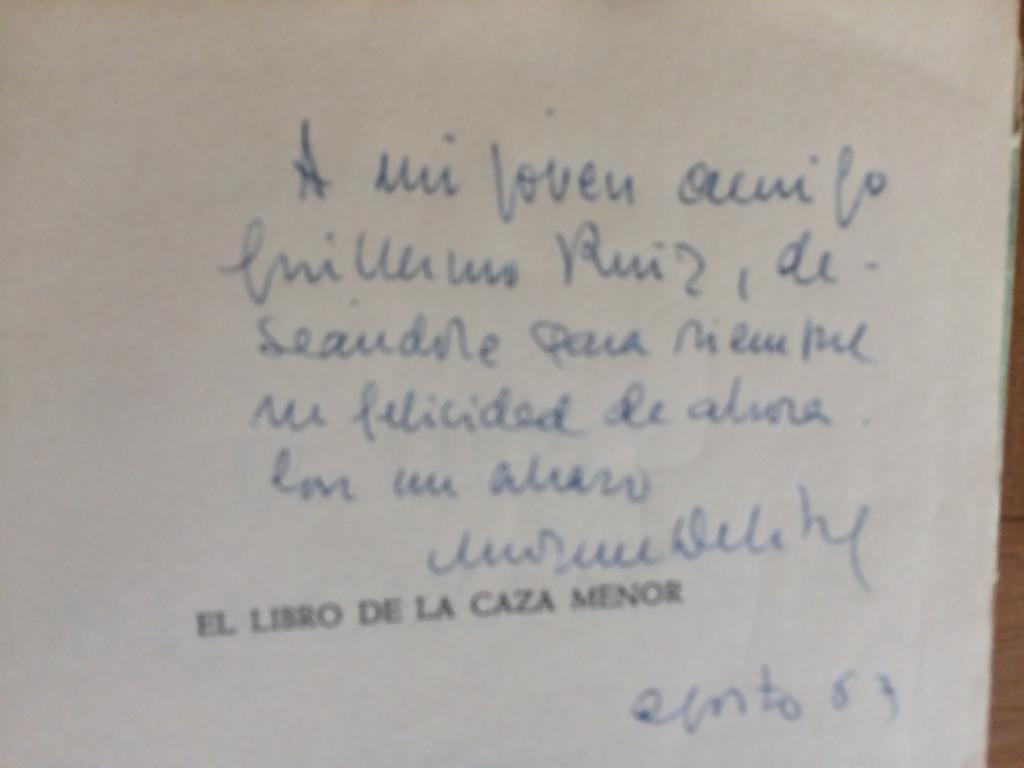 A mi joven amigo
Guillermo Ruiz, de-
seándole para siempre
su felicidad de ahora.
Con un abrazo
Miguel Delibes
EL LIBRO DE LA CAZA MENOR
agosto 63